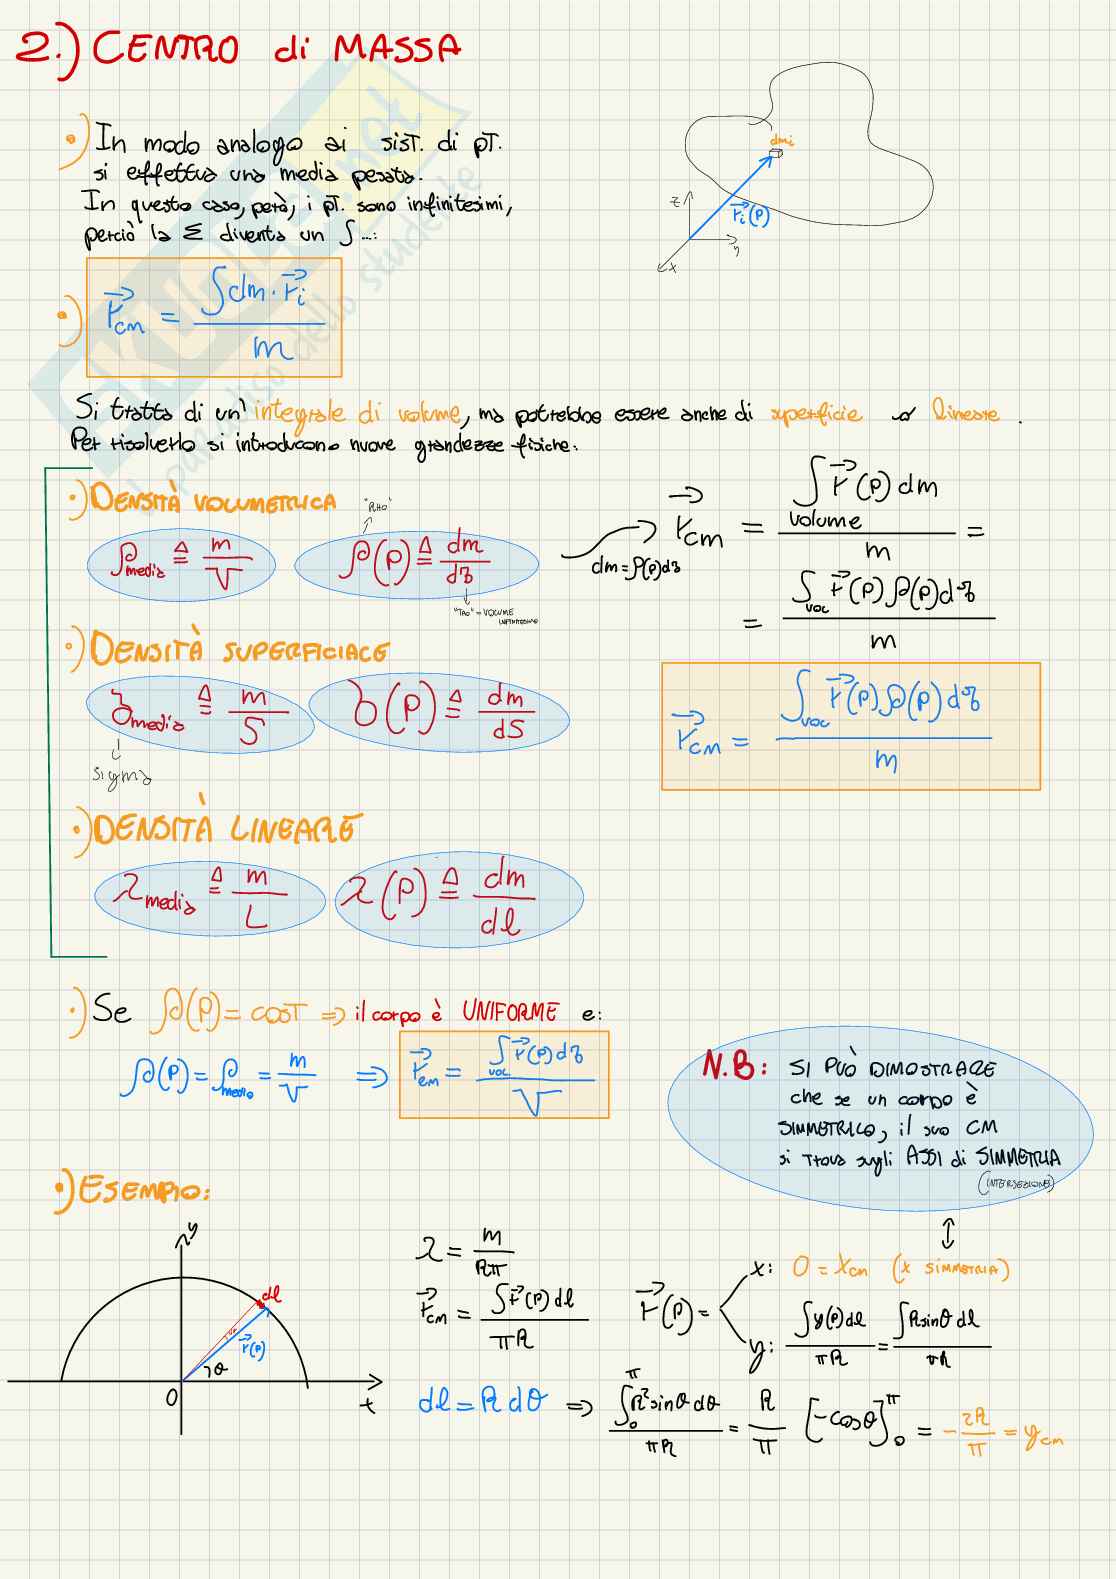 2.) CENTRO di MASSA
•) In modo analogo ai sist. di pt.
si effettua una media pesata.
In questo caso, però, i pt. sono infinitesimi,
perciò la Σ diventa un ∫...:
dmi
z
r⃗i(P)
y
x
•) r⃗cm = ∫dm · r⃗i / m
Si tratta di un' integrale di volume, ma potrebbe essere anche di superficie o lineare.
Per risolverlo si introducono nuove grandezze fisiche:
•) DENSITÀ VOLUMETRICA
"RHO"
ρmedia ≜ m/V
ρ(P) ≜ dm/dτ
"TAO" = VOLUME INFINITESIMO
dm = ρ(P)dτ
r⃗cm = ∫volume r⃗(P) dm / m =
= ∫vol r⃗(P) ρ(P) dτ / m
•) DENSITÀ SUPERFICIALE
σmedia ≜ m/S
σ(P) ≜ dm/dS
sigma
r⃗cm = ∫vol r⃗(P) ρ(P) dτ / m
•) DENSITÀ LINEARE
λmedia ≜ m/L
λ(P) ≜ dm/dl
•) Se ρ(P) = COST ⇒ il corpo è UNIFORME e:
ρ(P) = ρmedio = m/V ⇒ r⃗cm = ∫vol r⃗(P) dτ / V
N.B: SI PUÒ DIMOSTRARE
che se un corpo è
SIMMETRICO, il suo CM
si trova sugli ASSI di SIMMETRIA
(INTERSEZIONE)
•) ESEMPIO:
y
dl
dθ
r⃗(P)
θ
O
x
λ = m/Rπ
r⃗cm = ∫r⃗(P) dl / πR
r⃗(P) =
x: 0 = Xcm (x SIMMETRIA)
y: ∫y(P) dl / πR = ∫R sinθ dl / πR
dl = R dθ ⇒ ∫₀^π R² sinθ dθ / πR = R/π [-cosθ]₀^π = - 2R/π = ycm